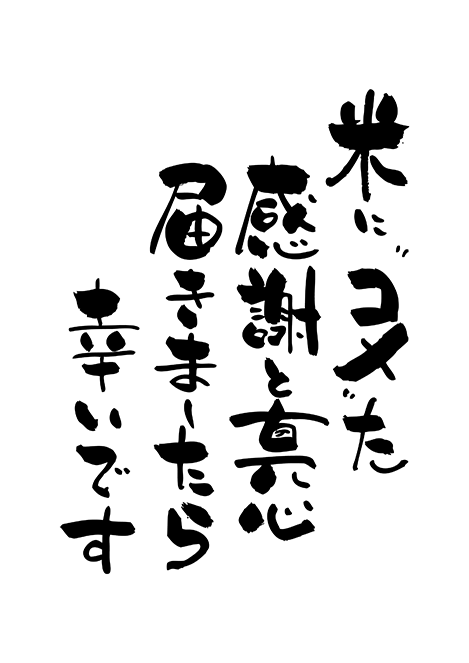 米に〝コメ〟た
感謝と真心
届きましたら
幸いです